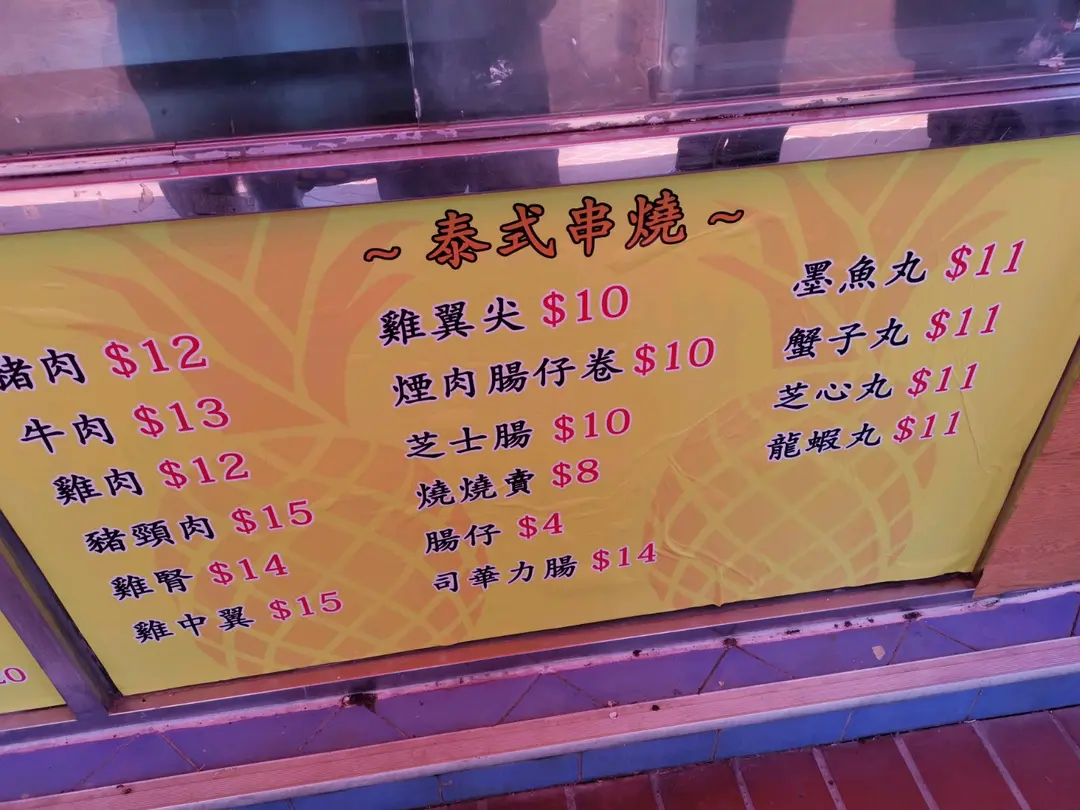 ~ 泰式串燒 ~
豬肉 $12
牛肉 $13
雞肉 $12
豬頸肉 $15
雞腎 $14
雞中翼 $15
雞翼尖 $10
煙肉腸仔卷 $10
芝士腸 $10
燒燒賣 $8
腸仔 $4
司華力腸 $14
墨魚丸 $11
蟹子丸 $11
芝心丸 $11
龍蝦丸 $11